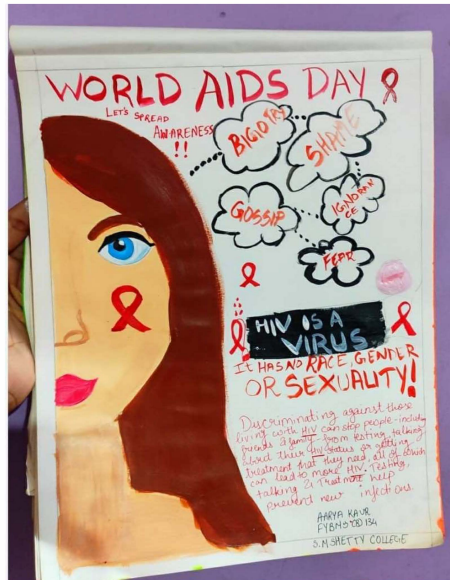 WORLD AIDS DAY
LET'S SPREAD
AWARENESS
!!
BIGIOTRY
SHAME
GOSSIP
IGINORAN
CE
FEAR
HIV IS A
VIRUS.
IT HAS NO RACE, GENDER
OR SEXUALITY!
Discriminating against those
living with HIV can stop people-includ
friends & family-from testing, talking
about their HIV status or getting
treatment that they need, all of which
can lead to more HIV. Testing,
talking & Treatment help
prevent new infections.
AARYA KAUR
FYBMS 134
S.M SHETTY COLLEGE